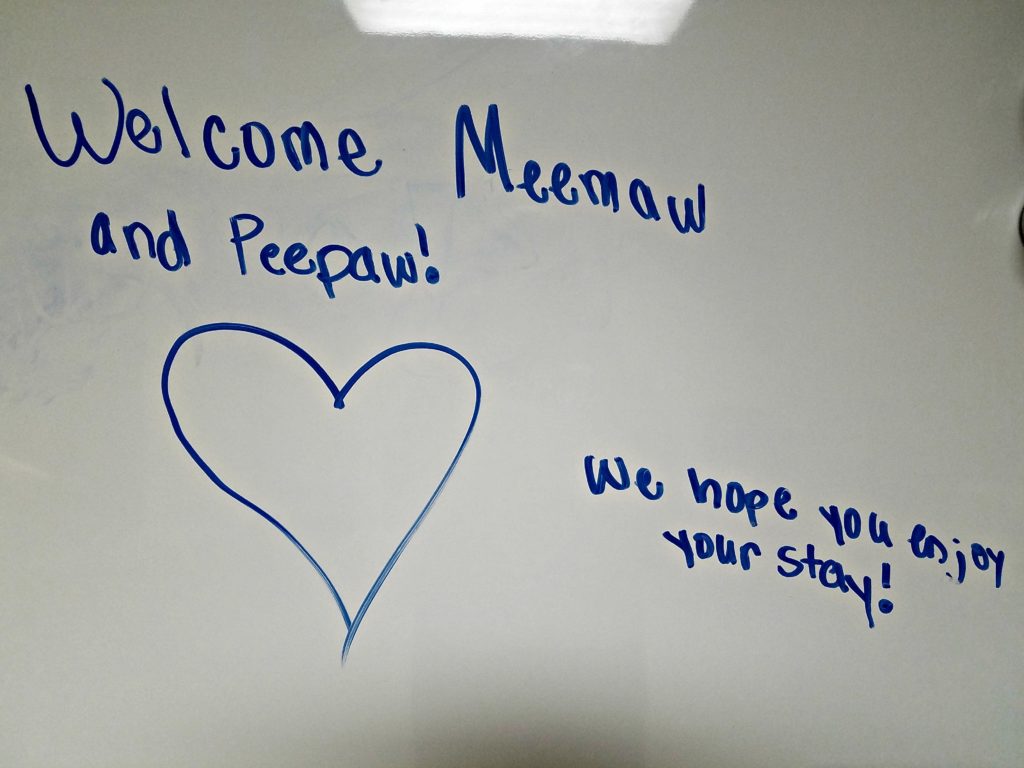 Welcome Meemaw
and Peepaw!
We hope you enjoy
your stay!